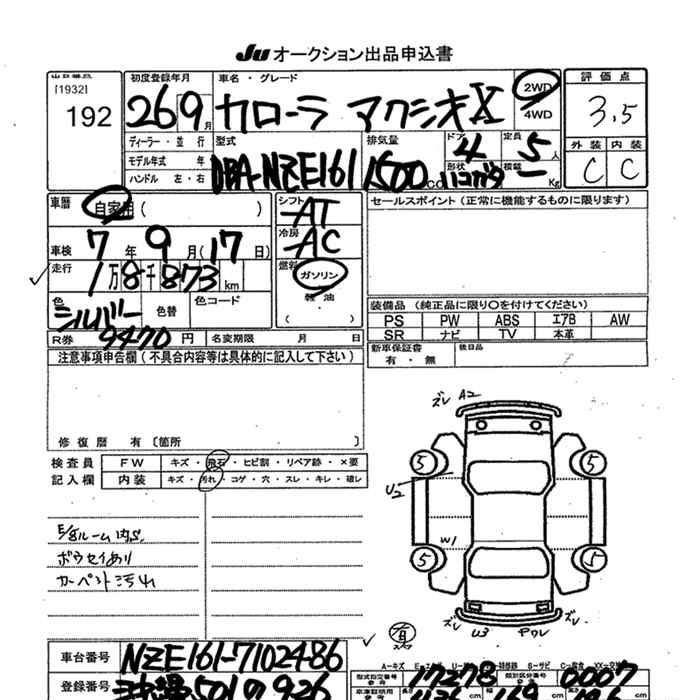 Ju オークション出品申込書
出品番号 初度登録年月 車名・グレード 2WD 評価点
[1932]
192 26 9月 カローラ アクシオX 4WD 3.5
ディーラー・並行 型式 排気量 ドア 4 定員 5人 外装 内装
モデル年式 年 DBA-NZE161 1500cc 形状 ハコガタ 積載 ー Kg C C
ハンドル 左・右
車暦 自家用( ) シフト AT セールスポイント(正常に機能するものに限ります)
車検 7年 9月(17日) 冷房 AC
走行 1万8千873km 燃料 ガソリン
軽油
( )
色 シルバー 色替 色コード 装備品(純正品に限り○を付けてください)
9470 PS PW ABS エアB AW
SR ナビ TV 本革
R券 円 名変期限 月 日 新車保証書 有・無 後日品
注意事項申告欄(不具合内容等は具体的に記入して下さい)
修復歴 有〔箇所 〕
検査員 FW キズ・飛石・ヒビ割・リペア跡・×要
記入欄 内装 キズ・汚れ・コゲ・穴・スレ・キレ・破レ
ズレ A2
5 5
U2
E/gルーム内S
ボウセイあり W1
カーペント汚れ 5 5
ズレ U3 Pワレ ズレ
車台番号 NZE161-7102486
型式指定番号 17278 類別区分番号 0007
登録番号 501 の 926